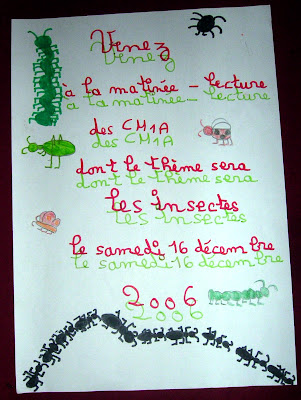 Venez
Venez
à la matinée - lecture
a la matinée - lecture
des CM1A
des CM1A
dont le thème sera
dont le thème sera
les insectes
les insectes
le samedi 16 décembre
le samedi 16 décembre
2006
2006